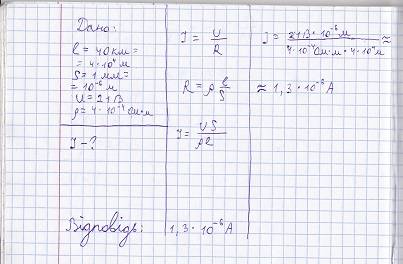 Дано:
l = 40 км =
= 4·10⁴ м
S = 1 мм² =
= 10⁻⁶ м
U = 21 В
ρ = 4·10⁻⁴ Ом·м
I - ?
I = U/R
R = ρ l/S
I = US/ρl
I = 21 В·10⁻⁶ м / 4·10⁻⁴ Ом·м·4·10⁴ м ≈
≈ 1,3·10⁻⁶ А
Відповідь: 1,3·10⁻⁶ А